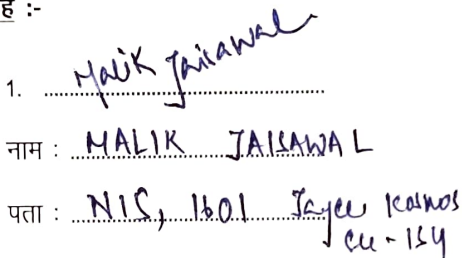 ह :-
1. Malik Jaisawal
नाम : MALIK JAISAWAL
पता : N15, 1601 Jaypee Kosmos